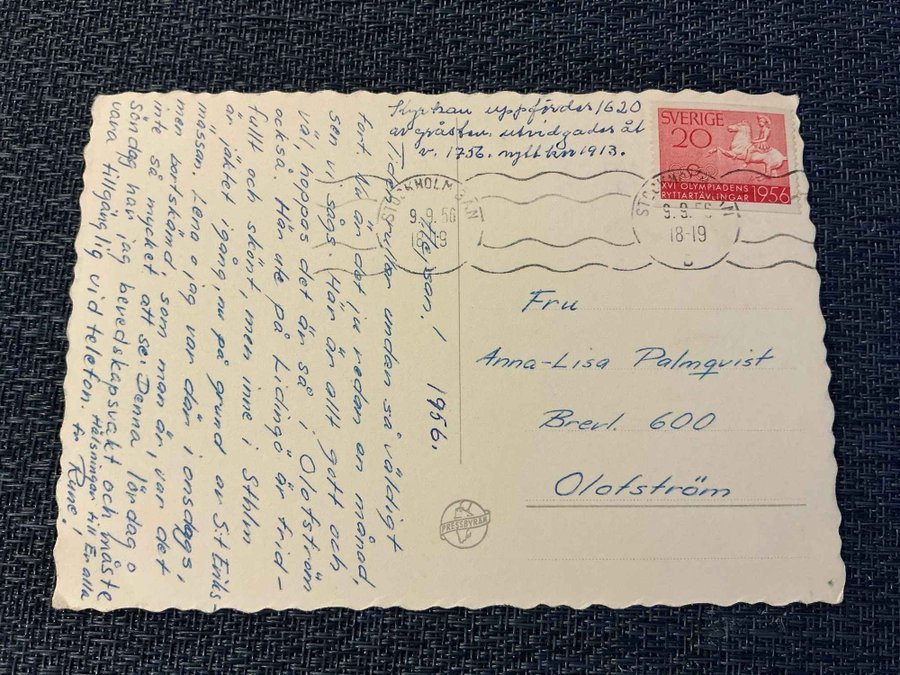 Kyrkan uppfördes 1620
av gråsten, utvidgades åt
v. 1756. nytt torn 1913.
SVERIGE
20
XVI OLYMPIADENS
RYTTARTÄVLINGAR 1956
STOCKHOLM BAN
9.9.56
18-19
STOCKHOLM BAN
9.9.56
18-19
Hejsan! 1956.
Tiden rullar undan så väldigt
fort. Nu är det ju redan en månad
sen vi sågs. Här är allt gott och
väl, hoppas det är så i Olofström
också. Här ute på Lidingö är frid-
fullt och skönt, men inne i Sthlm
är jäktet igång, nu på grund av S:t Eriks-
mässan. Lena o jag var där i onsdags,
men bortskämd som man är, var det
inte så mycket att se. Denna lördag o
söndag har jag beredskapsvakt och måste
vara tillgänglig vid telefon. Hälsningar till Er alla
fr Rune!
Fru
Anna-Lisa Palmqvist
Brevl. 600
Olofström
PRESSBYRÅN